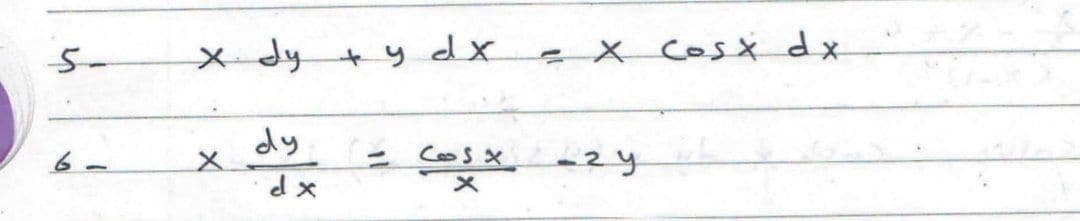 5- x dy + y dx = x cosx dx
6- x dy/dx = cosx/x - 2y